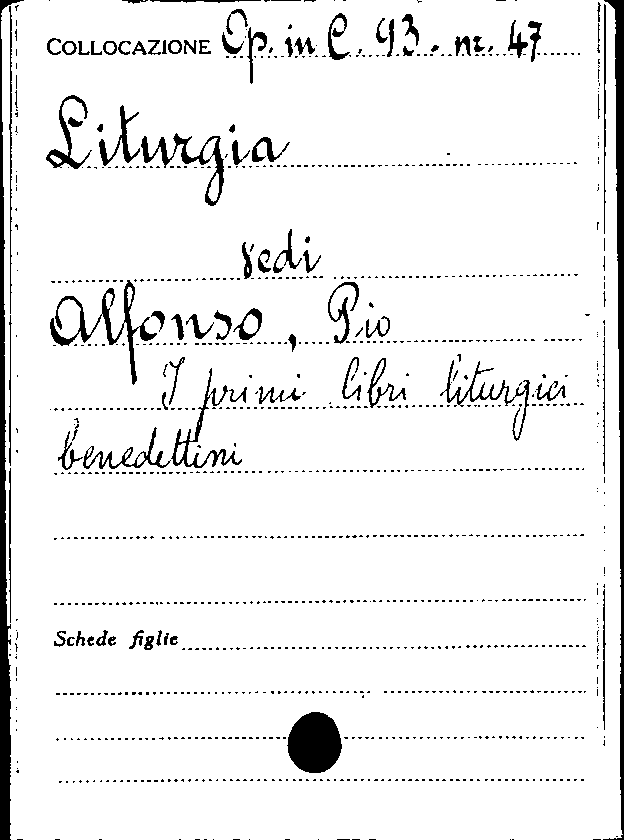 COLLOCAZIONE Op. in C. 93. nr. 47
Liturgia
vedi
Alfonso, Pio
I primi libri liturgici
benedettini
Schede figlie